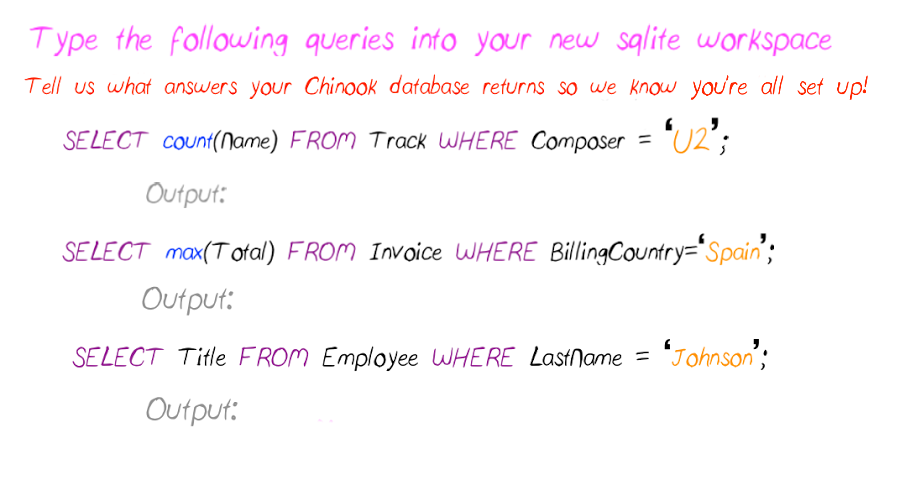 Type the following queries into your new sqlite workspace
Tell us what answers your Chinook database returns so we know you're all set up!
SELECT count(Name) FROM Track WHERE Composer = 'U2';
Output:
SELECT max(Total) FROM Invoice WHERE BillingCountry='Spain';
Output:
SELECT Title FROM Employee WHERE LastName = 'Johnson';
Output: